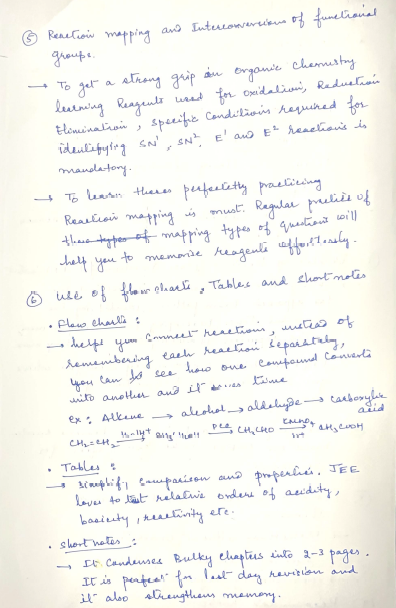 ⑤ Reaction mapping and Interconversions of functional
groups.
→ To get a strong grip in organic chemistry
learning Reagents used for oxidation, Reduction
Elimination, specific conditions required for
identifying SN¹, SN², E¹ and E² reactions is
mandatory.
→ To learn theres perfectly practicing
Reaction mapping is must. Regular practice of
these types of mapping types of question will
help you to memorise reagents effortlessly.
⑥ use of flow charts, Tables and short notes
• Flow charts :
→ helps you connect reactions, instead of
remembering each reaction separately,
you can see how one compound converts
into another and it time
ex: Alkene → alcohol → aldehyde → carboxylic
acid
CH₂=CH₂ → PCC → CH₃CHO → CH₃COOH
• Tables :
→ simplify comparison and properties. JEE
loves to test relative orders of acidity,
basicity, reactivity etc.
• Short notes :
→ It condenses Bulky chapters into 2-3 pages.
It is perfect for last day revision and
it also strengthens memory.